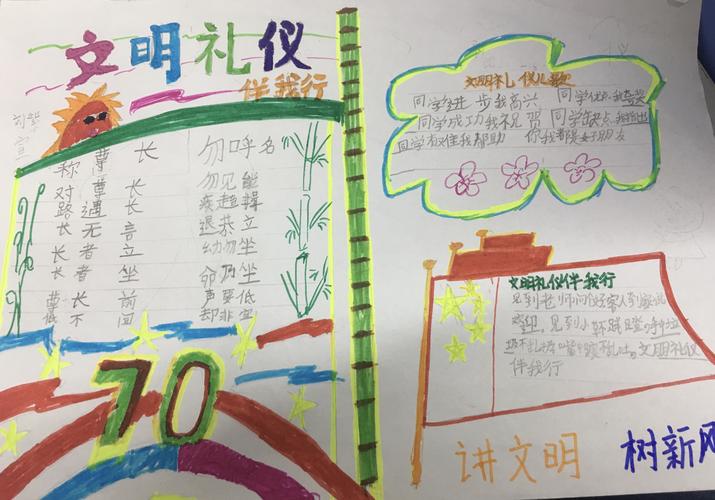 文明礼仪
伴我行
称尊长 勿呼名
对尊长 勿见能
路遇长 疾趋揖
长无言 退恭立
长者立 幼勿坐
长者坐 命乃坐
尊长前 声要低
不 却非宜
70
文明礼仪儿歌
同学进步我高兴 同学优点我夸奖
同学成功我祝贺 同学缺点我指出
同学有难我帮助 你我都是好朋友
文明礼仪伴我行
见到老师问好客人到
欢迎,见到小
文明礼仪
伴我行
讲文明 树新风